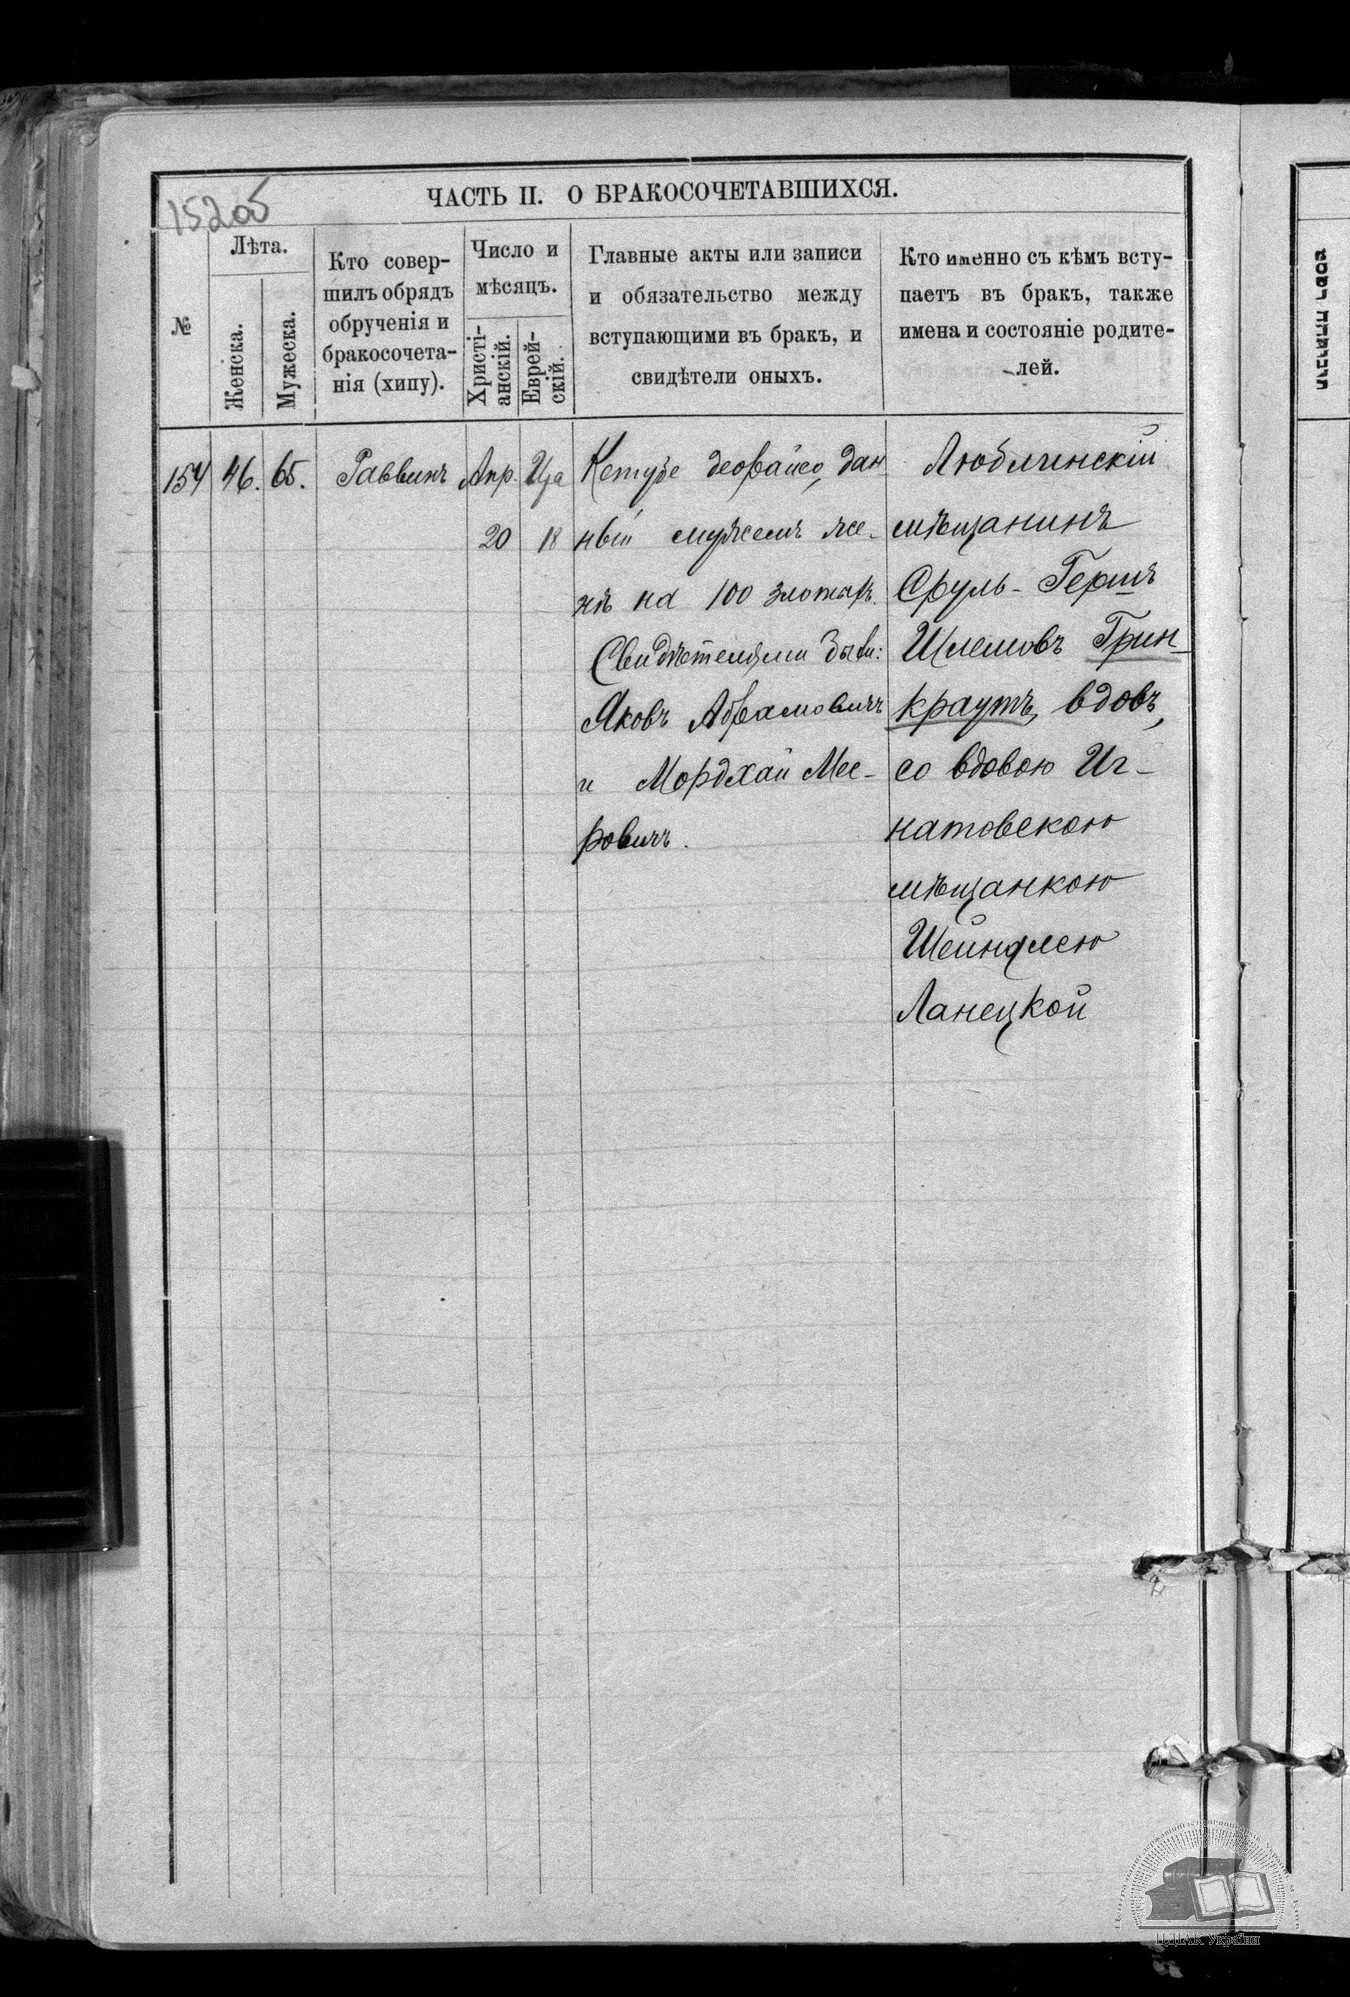 15205
ЧАСТЬ II. О БРАКОСОЧЕТАВШИХСЯ.
№
Лѣта.
Женска.
Мужеска.
Кто совер-
шилъ обрядъ
обрученія и
бракосочета-
нія (хипу).
Число и
мѣсяцъ.
Христі-
анскій.
Еврей-
скій.
Главные акты или записи
и обязательство между
вступающими въ бракъ, и
свидѣтели оныхъ.
Кто именно съ кѣмъ всту-
паетъ въ бракъ, также
имена и состояніе родите-
лей.
154
46.
65.
Раввинъ
Апр.
20
18
Кетубе деорайсо, дан
ный мужемъ же-
нѣ на 100 злотыхъ.
Свидѣтелями были:
Яковъ Абрамовичъ
и Мордхай Мее-
ровичъ.
Люблинскій
мѣщанинъ
Сруль-Гершъ
Шлемовъ Грин-
краутъ, вдовъ,
со вдовою Иг-
натовскою
мѣщанкою
Шейндлею
Ланецкой
ЦДІАК України